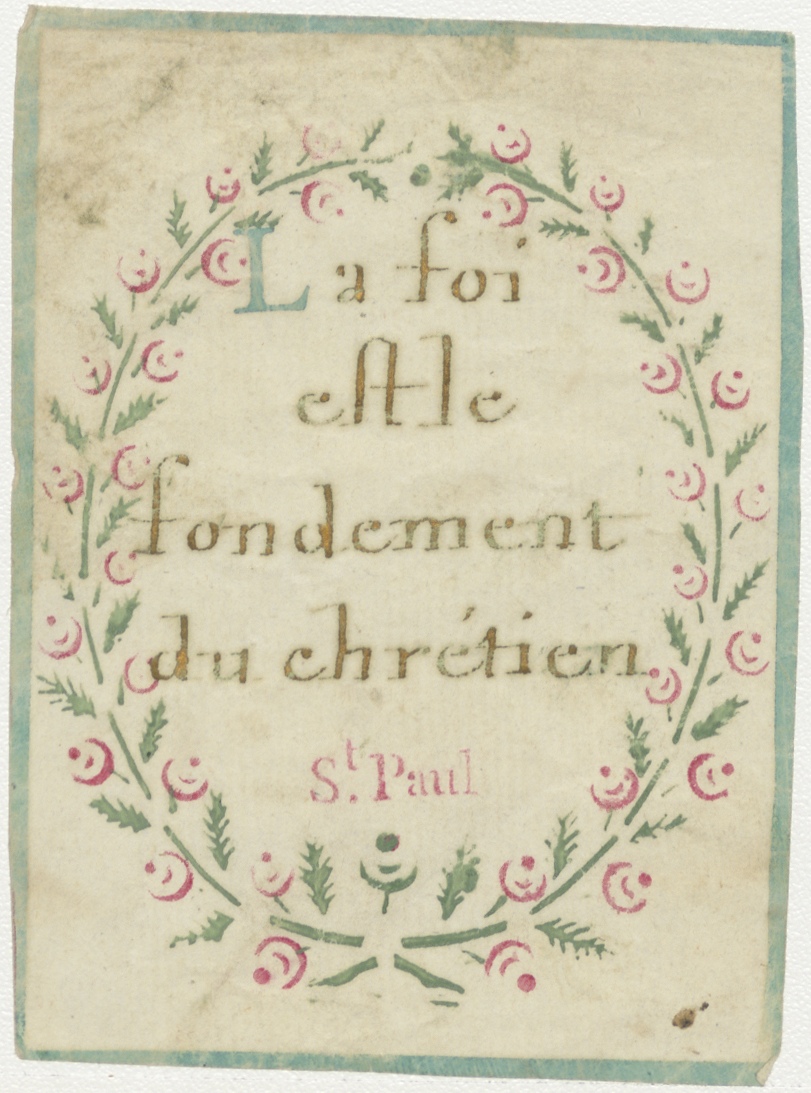 La foi
est le
fondement
du chrétien
St. Paul